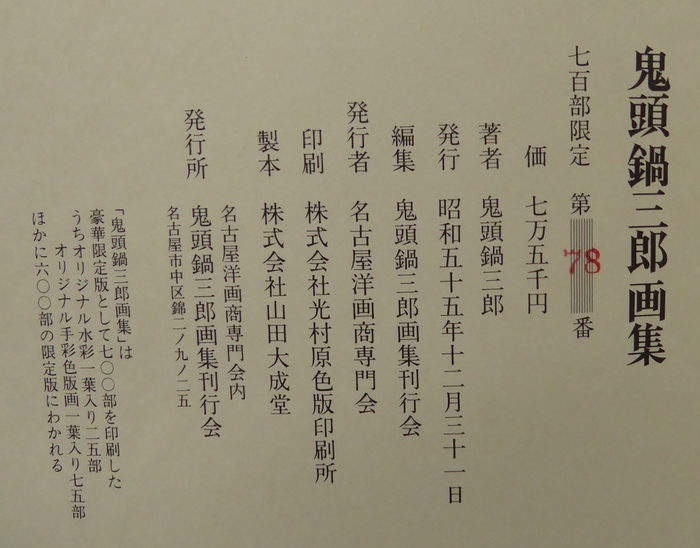 鬼頭鍋三郎画集
七百部限定　第78番
価　七万五千円
著者　鬼頭鍋三郎
発行　昭和五十五年十二月三十一日
編集　鬼頭鍋三郎画集刊行会
発行者　名古屋洋画商専門会
印刷　株式会社光村原色版印刷所
製本　株式会社山田大成堂
名古屋洋画商専門会内
発行所　鬼頭鍋三郎画集刊行会
名古屋市中区錦二ノ九ノ二五
「鬼頭鍋三郎画集」は
豪華限定版として七〇〇部を印刷した
うちオリジナル水彩一葉入り二五部
オリジナル手彩色版画一葉入り七五部
ほかに六〇〇部の限定版にわかれる